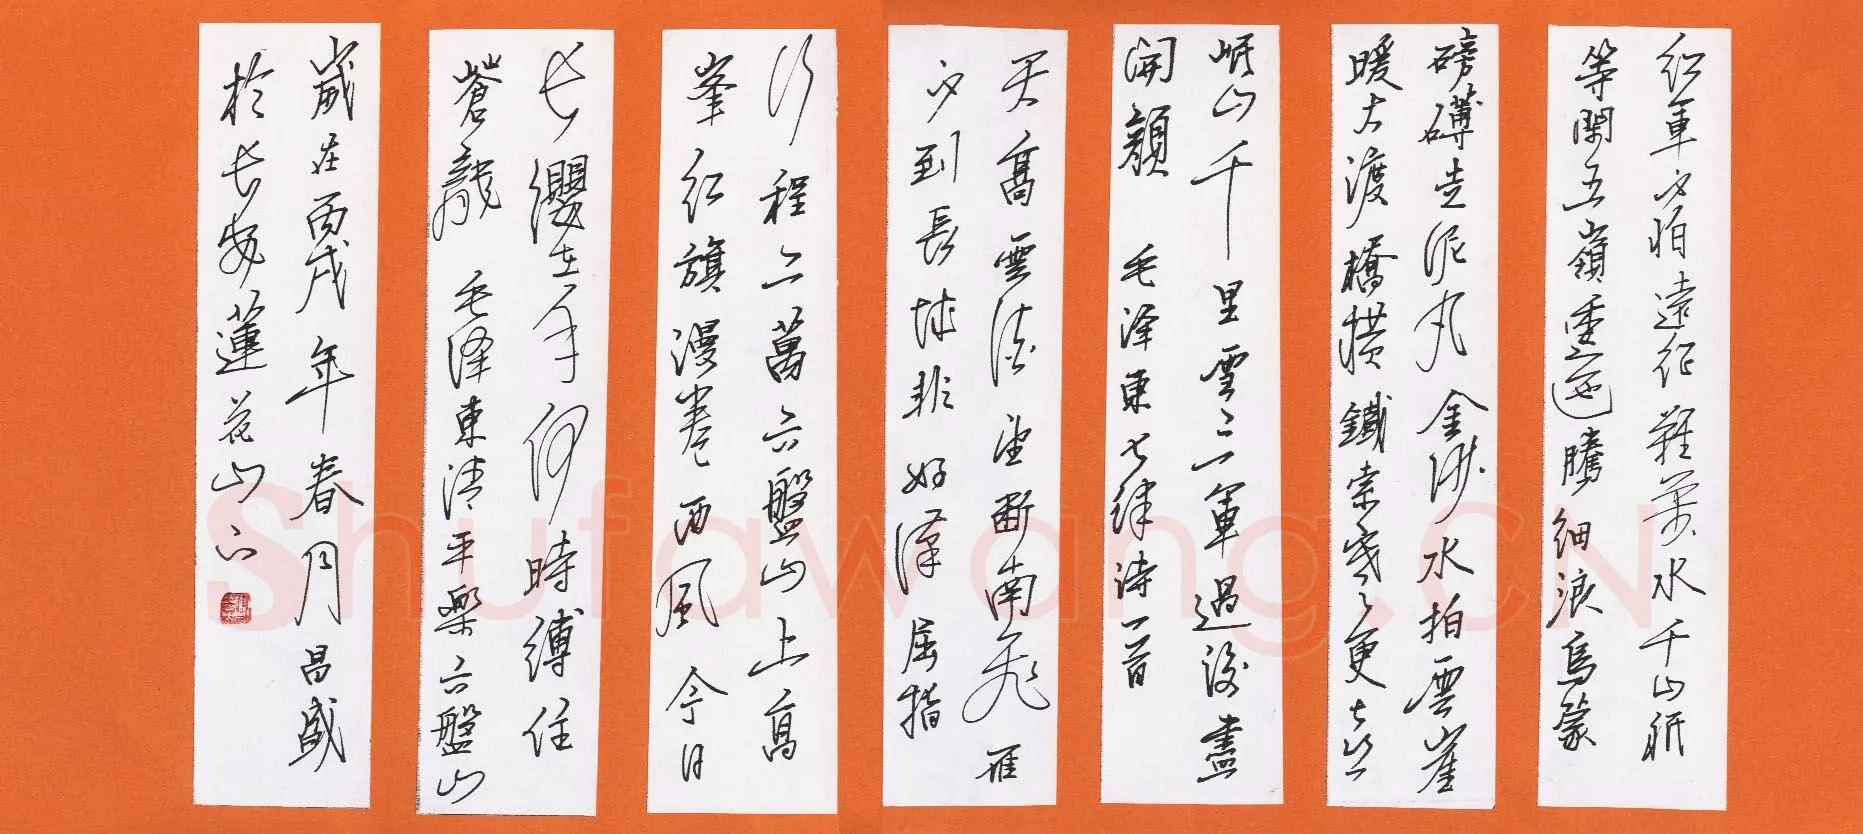 红軍不怕遠征難萬水千山祇
等閑五嶺逶迤騰細浪烏蒙
磅礴走泥丸 金沙水拍雲崖
暖大渡橋横鐵索寒更喜
岷山千里雪三軍過後盡
開顏 毛泽東七律诗一首
天高雲淡望断南飛雁
不到長城非好漢屈指
行程二萬六盤山上高
峯红旗漫卷西風今日
长纓在手何時縛住
蒼龍 毛泽東清平樂六盤山
歲在丙戌年春月昌盛
於长安蓮花山下
Shufawang.CN